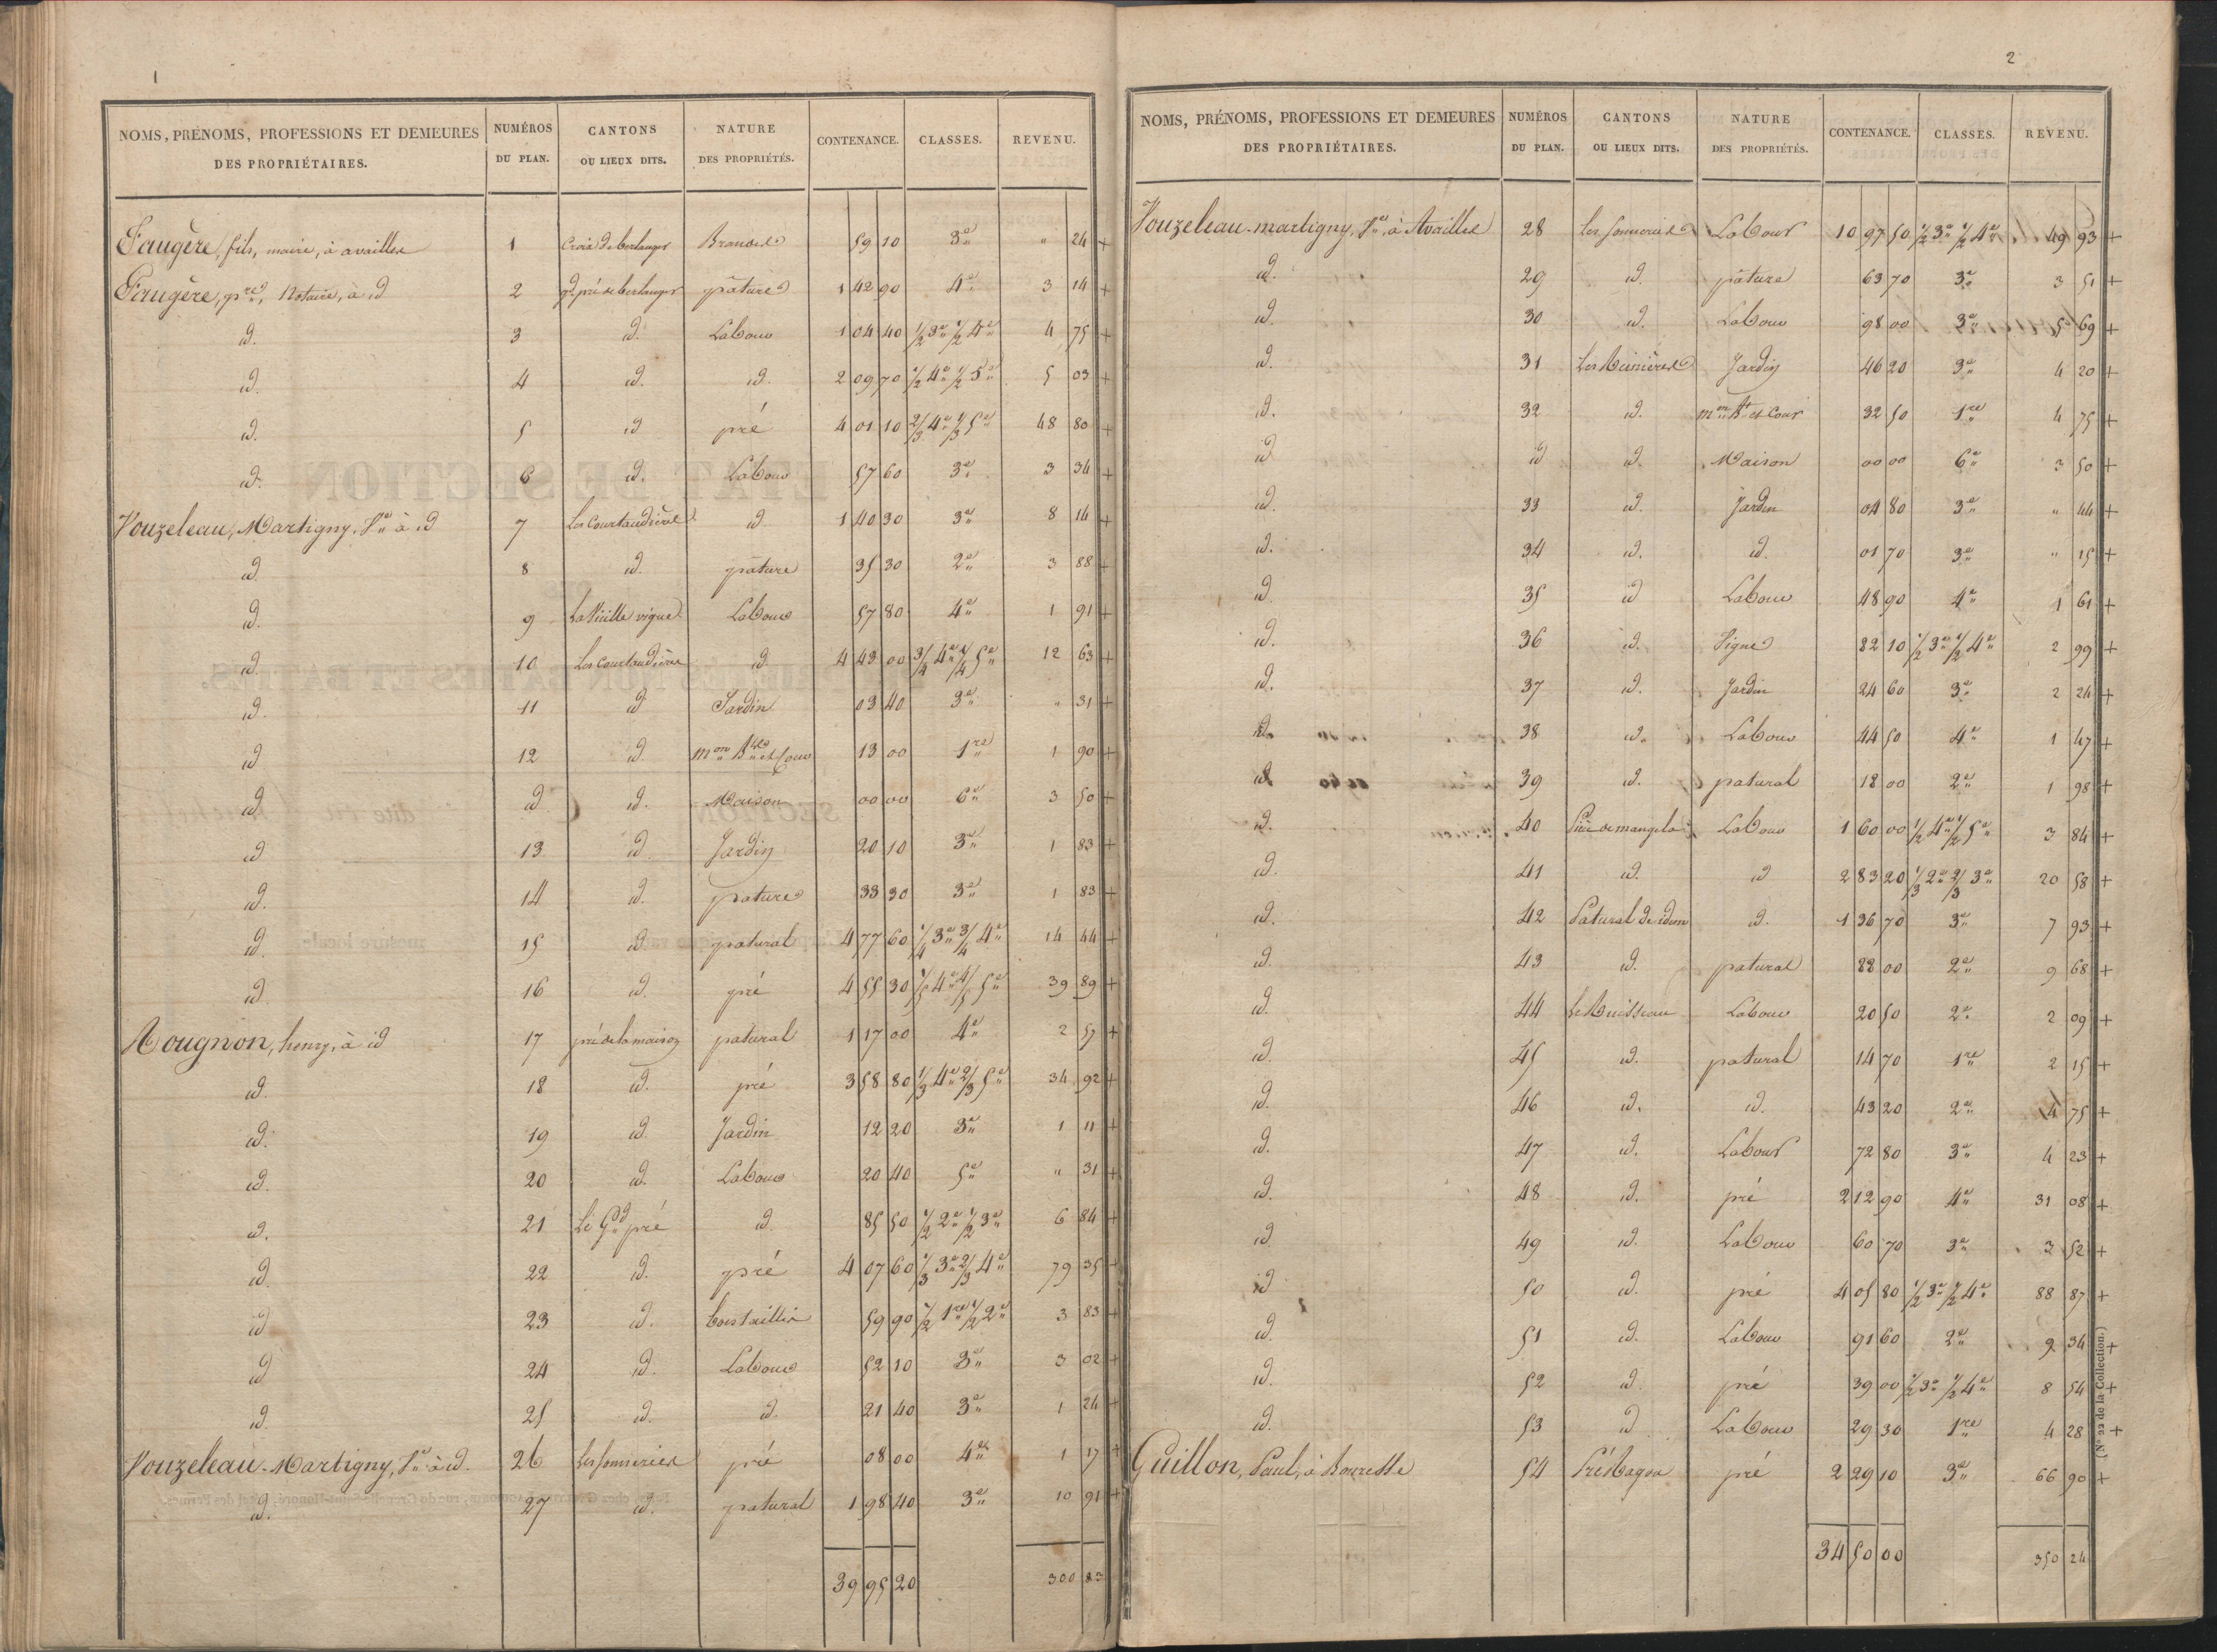 1
NOMS, PRÉNOMS, PROFESSIONS ET DEMEURES DES PROPRIÉTAIRES. NUMÉROS DU PLAN. CANTONS OU LIEUX DITS. NATURE DES PROPRIÉTÉS. CONTENANCE. CLASSES. REVENU.
Faugère, fils, maire, à availles 1 Croix de berlanger Brandes 59 10 3e " 24 +
Faugère, pre, Notaire, à id 2 gd pré de berlanger pâture 1 42 90 4e 3 14 +
id. 3 id. Labour 1 04 40 1/2 3e 1/2 4e 4 75 +
id. 4 id. id. 2 09 70 1/2 4e 1/2 5e 5 03 +
id. 5 id pré 4 01 10 2/3 4e 1/3 5e 48 80 +
id. 6 id. Labour 57 60 3e 3 34 +
Vouzeleau, Martigny, Ve à id 7 Les Courtaudières id 1 40 30 3e 8 14 +
id 8 id. pâture 35 30 2e 3 88 +
id. 9 La Vieille vigne Labour 57 80 4e 1 91 +
id. 10 Les Courtaudières id 4 43 00 3/4 4e 1/4 5e 12 63 +
id. 11 id Jardin 03 40 3e " 31 +
id 12 id. mon Bte et Cour 13 00 1re 1 90 +
id id id. Maison 00 00 6e 3 50 +
id 13 id Jardin 20 10 3e 1 83 +
id. 14 id. pature 33 30 3e 1 83 +
id. 15 id patural 4 77 60 1/4 3e 3/4 4e 14 44 +
id. 16 id. pré 4 55 30 1/5 4e 4/5 5e 39 89 +
Rougnon, henry, à id 17 pré de la maison patural 1 17 00 4e 2 57 +
id. 18 id. pré 3 58 80 1/3 4e 2/3 5e 34 92 +
id. 19 id. Jardin 12 20 3e 1 11 +
id. 20 id. Labour 20 40 5e " 31 +
id. 21 Le Gd pré id. 85 50 1/2 2e 1/2 3e 6 84 +
id. 22 id. pré 4 07 60 1/3 3e 2/3 4e 79 35 +
id 23 id. bois taillis 59 90 1/2 1re 1/2 2e 3 83 +
id 24 id. Labour 52 10 3e 3 02 +
id. 25 id. id. 21 40 3e 1 24 +
Vouzeleau-Martigny, Ve à id. 26 Les Sonneries pré 08 00 4e 1 17 +
id. 27 id. patural 1 98 40 3e 10 91 +
39 95 20 300 83
2
NOMS, PRÉNOMS, PROFESSIONS ET DEMEURES DES PROPRIÉTAIRES. NUMÉROS DU PLAN. CANTONS OU LIEUX DITS. NATURE DES PROPRIÉTÉS. CONTENANCE. CLASSES. REVENU.
Vouzeleau-martigny, Ve, à Availles 28 Les Sonneries Labour 10 97 50 1/2 3e 1/2 4e 49 93 +
id. 29 id. pâture 63 70 3e 3 51 +
id. 30 id. Labour 98 00 3e 5 69 +
id. 31 Jardin 46 20 3e 4 20 +
id. 32 id. mon Bt et Cour 32 50 1re 4 75 +
id id id. Maison 00 00 6e 3 50 +
id. 33 id. Jardin 04 80 3e " 44 +
id. 34 id. id. 01 70 3e " 15 +
id. 35 id Labour 48 90 4e 1 61 +
id. 36 id. Vigne 82 10 1/2 3e 1/2 4e 2 99 +
id. 37 id. Jardin 24 60 3e 2 24 +
id. 38 id. Labour 44 50 4e 1 47 +
id 39 id. patural 18 00 2e 1 98 +
id. 40 Labour 1 60 00 1/2 4e 1/2 5e 3 84 +
id. 41 id. id 2 83 20 1/3 2e 2/3 3e 20 58 +
id. 42 Patural de idem id. 1 36 70 3e 7 93 +
id 43 id. patural 88 00 2e 9 68 +
id. 44 Le Ruisseau Labour 20 50 2e 2 09 +
id. 45 id. patural 14 70 1re 2 15 +
id. 46 id. id. 43 20 2e 4 75 +
id. 47 id. Labour 72 80 3e 4 23 +
id. 48 id. pré 2 12 90 4e 31 08 +
id 49 id. Labour 60 70 3e 3 52 +
id 50 id. pré 4 05 80 1/2 3e 1/2 4e 88 87 +
id. 51 id. Labour 91 60 2e 9 34 +
id. 52 id. pré 39 00 1/2 3e 1/2 4e 8 54 +
id. 53 id Labour 29 30 1re 4 28 +
Guillon, Paul, à Bouresse 54 pré 2 29 10 3e 66 90 +
34 50 00 350 24
(No 22 de la Collection.)